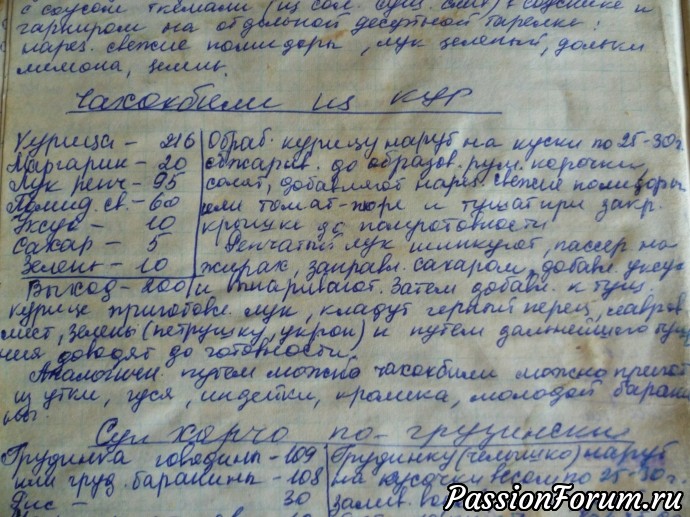 с соусом ткемали (из сол. сушл. слив) в соуснике и
гарниром на отдельной десертной тарелке:
нарез. свежие помидоры, лук зеленый, дольки
лимона, зелень.
Чахохбили из кур
Курица - 216
Маргарин - 20
Лук репч - 95
Помид. св. - 60
Уксус - 10
Сахар - 5
Зелень - 10
Выход - 200
Обраб. курицу наруб на куски по 25-30г.
обжарив. до образов. рум. корочки
солят, добавляют нарез. свежие помидоры
или томат-пюре и тушат при закр.
крышке до полуготовности
Репчатый лук шинкуют, пассер на
жирах, заправл. сахаром, добавл. уксус
и выпаривают. Затем добавл. к туш.
курице приготовл. лук, кладут черный перец, лавров.
лист, зелень (петрушку, укроп) и путем дальнейшего туш
ния доводят до готовности.
Аналогичн. путем можно чахохбили можно пригот
из утки, гуся, индейки, кролика, молодой барани
ны.
Суп Харчо по-грузински
Грудинка говядины - 109
или груд. баранины - 108
Рис - 30
Грудинку (челышко) наруб
на кусочки весом по 25-30г.
залив.
PassionForum.ru